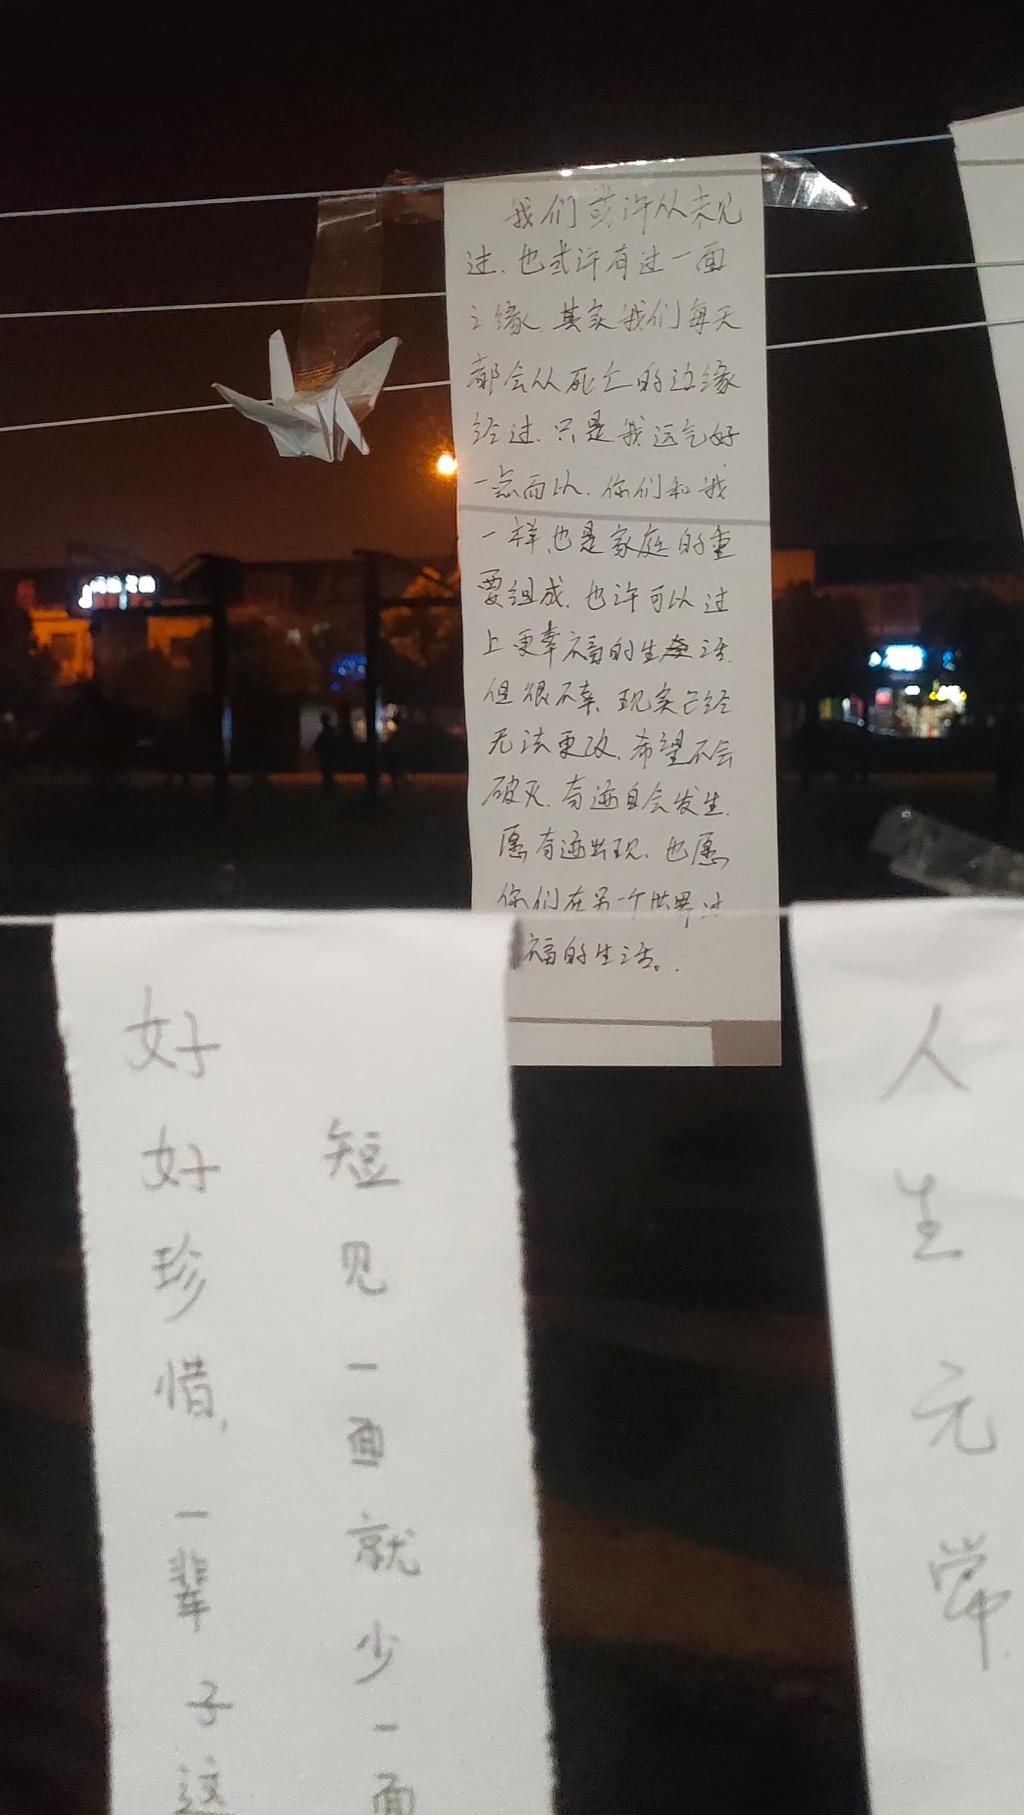 我们或许从未见
过、也或许有过一面
之缘、其实我们每天
都会从死亡的边缘
经过、只是我运气好
一点而以、你们和我
一样也是家庭的重
要组成、也许可以过
上更幸福的生活、
但很不幸、现实已经
无法更改、希望不会
破灭、奇迹自会发生、
愿奇迹出现、也愿
你们在另一个世界过
福的生活。
好好珍惜,一辈子这
短见一面就少一面
人生无常